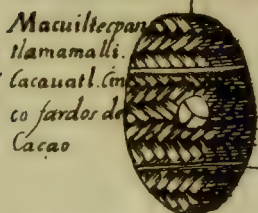 Macuiltecpan
tlamamalli.
Cacauatl. Cin
co fardos de
Cacao